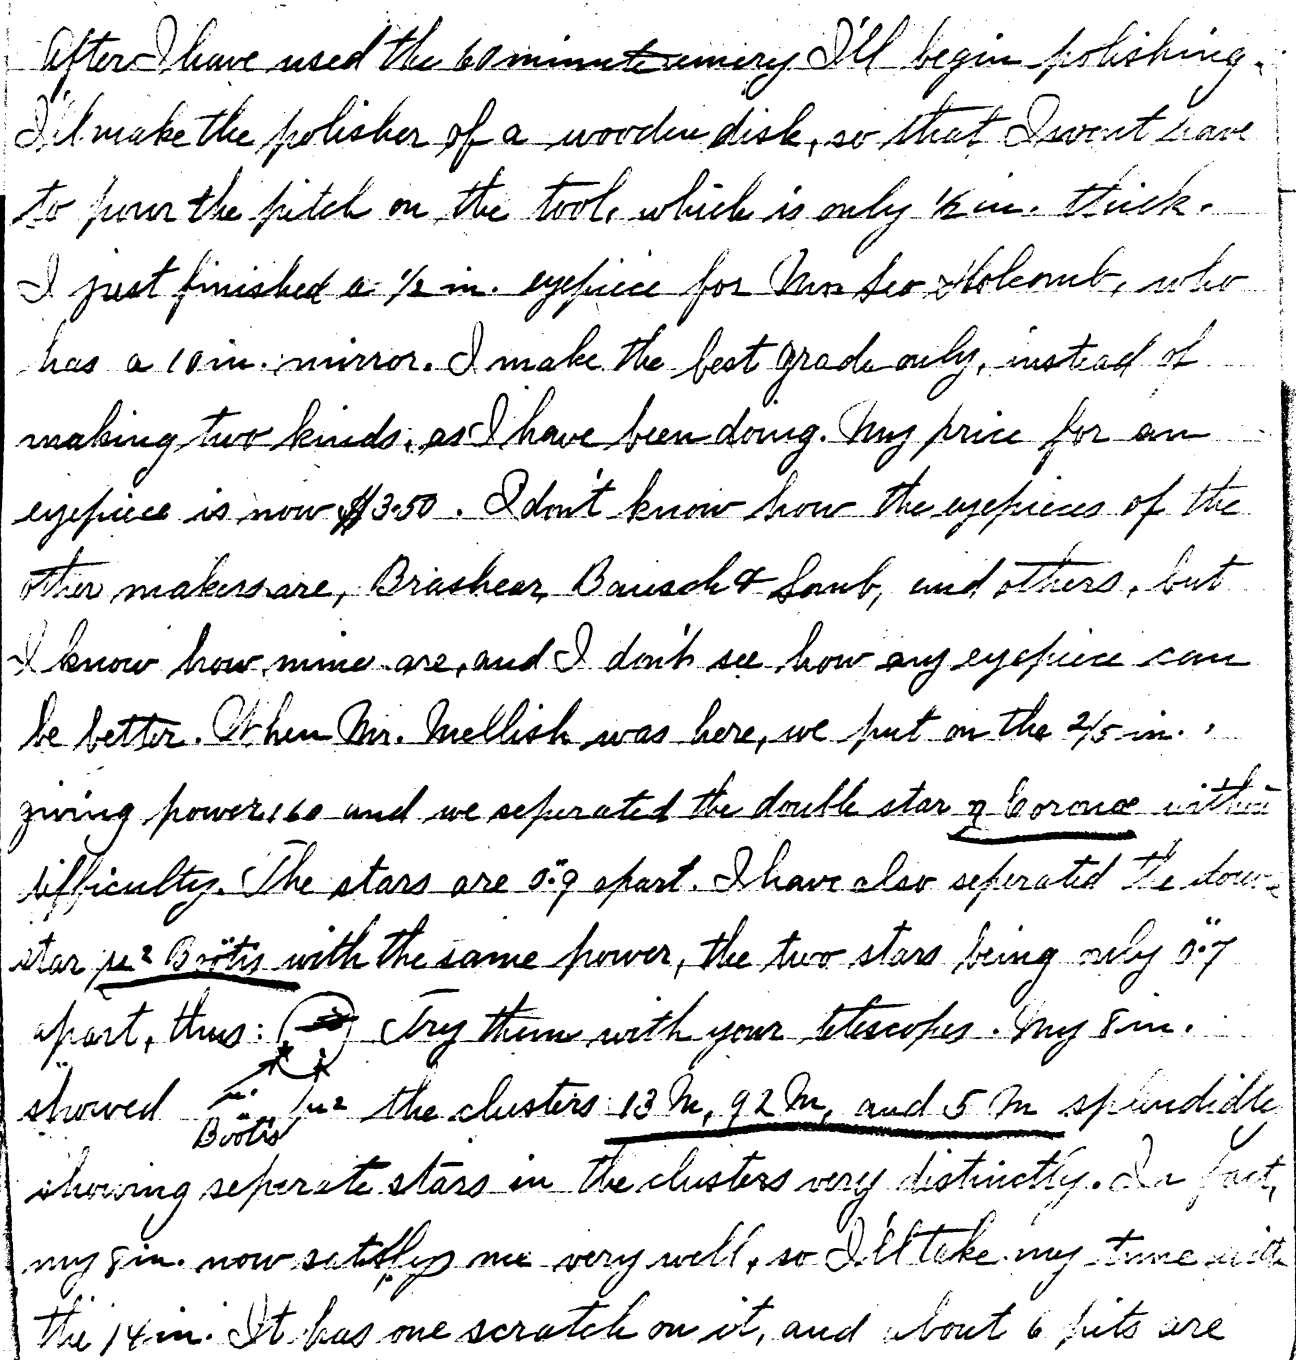 After I have used the 60 minute emery I'll begin polishing.
I'll make the polisher of a wooden disk, so that I wont have
to pour the pitch on the tool, which is only ½ in. thick.
I just finished a ½ in. eyepiece for Mr Leo Holcomb, who
has a 10 in. mirror. I make the best grade only, instead of
making two kinds, as I have been doing. My price for an
eyepiece is now $3.50. I don't know how the eyepieces of the
other makers are, Brashear, Bausch & Lomb, and others, but
I know how mine are, and I don't see how any eyepiece can
be better. When Mr. Mellish was here, we put on the 2/5 in.,
giving power 160 and we seperated the double star η Coronæ
difficulty. The stars are 0."9 apart. I have also seperated the
star μ² Boötis with the same power, the two stars being only 0."7
apart, thus: Try them with your telescopes. My 8 in.
showed μ² the clusters 13 M, 92 M, and 5 M splendidly
Boötis
showing seperate stars in the clusters very distinctly. In fact,
my 8 in. now satisfys me very well, so I'll take my time with
the 14 in. It has one scratch on it, and about 6 pits are